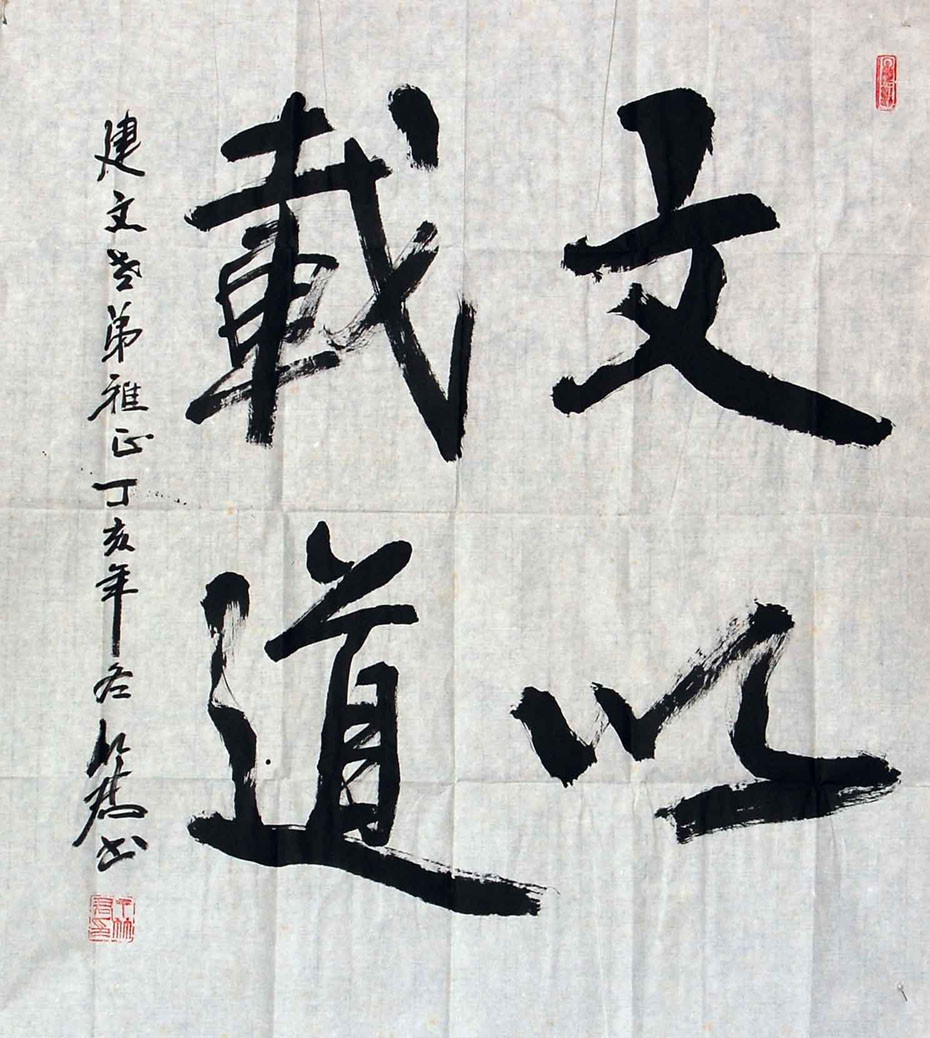 文以
載道
建文老弟雅正丁亥年冬
書